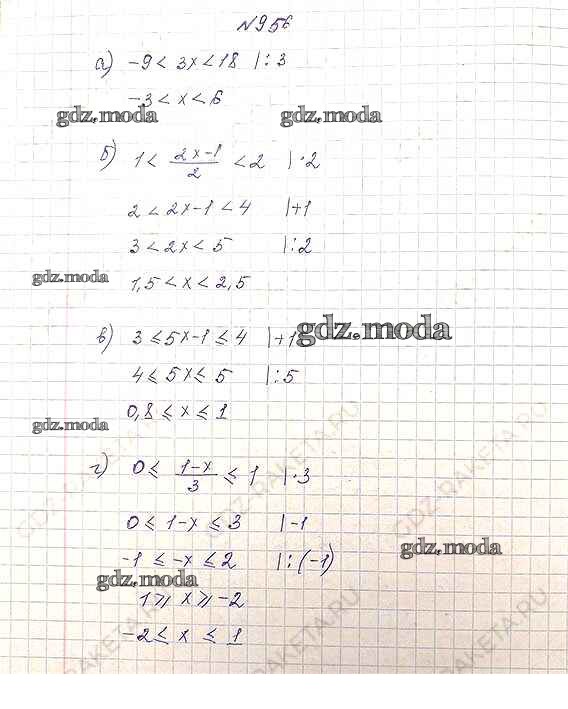 №956
а) -9 < 3x < 18 |:3
-3 < x < 6
gdz.moda gdz.moda
б) 1 < (2x-1)/2 < 2 |·2
2 < 2x-1 < 4 |+1
3 < 2x < 5 |:2
gdz.moda
1,5 < x < 2,5
в) 3 ≤ 5x-1 ≤ 4 |+1
gdz.moda
4 ≤ 5x ≤ 5 |:5
0,8 ≤ x ≤ 1
gdz.moda
г) 0 ≤ (1-x)/3 ≤ 1 |·3
0 ≤ 1-x ≤ 3 |-1
gdz.moda
-1 ≤ -x ≤ 2 |:(-1)
gdz.moda
1 ≥ x ≥ -2
-2 ≤ x ≤ 1
GDZ-RAKETA.RU
GDZ-RAKETA.RU
GDZ-RAKETA.RU
GDZ-RAKETA.RU